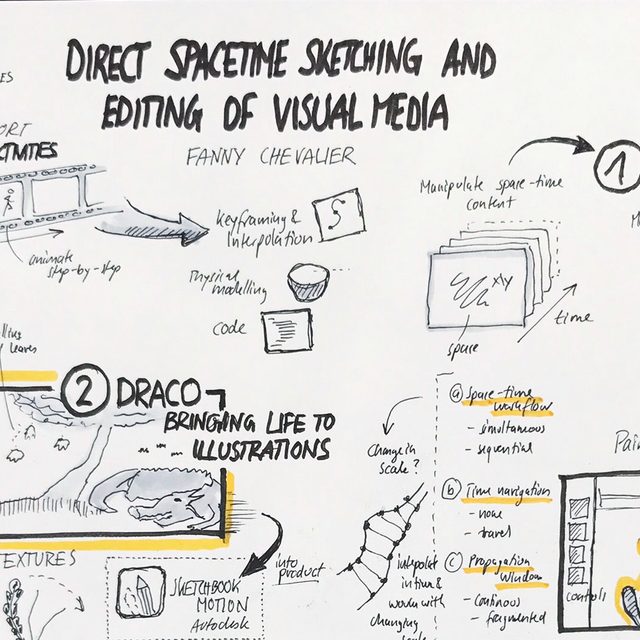 DIRECT SPACETIME SKETCHING AND
EDITING OF VISUAL MEDIA
FANNY CHEVALIER
animate
step-by-step
Keyframing &
Interpolation
Physical
modelling
code
Manipulate space-time
content
1
xy
space
time
leaves
2 DRACO
BRINGING LIFE TO
ILLUSTRATIONS
TEXTURES
SKETCHBOOK
MOTION
Autodesk
into
product
Change in
scale?
interpolate
in time &
works with
changing
a Space-time
workflow
- simultaneous
- sequential
b Time navigation
- none
- travel
c Propagation
window
- continous
- fragmented
controls